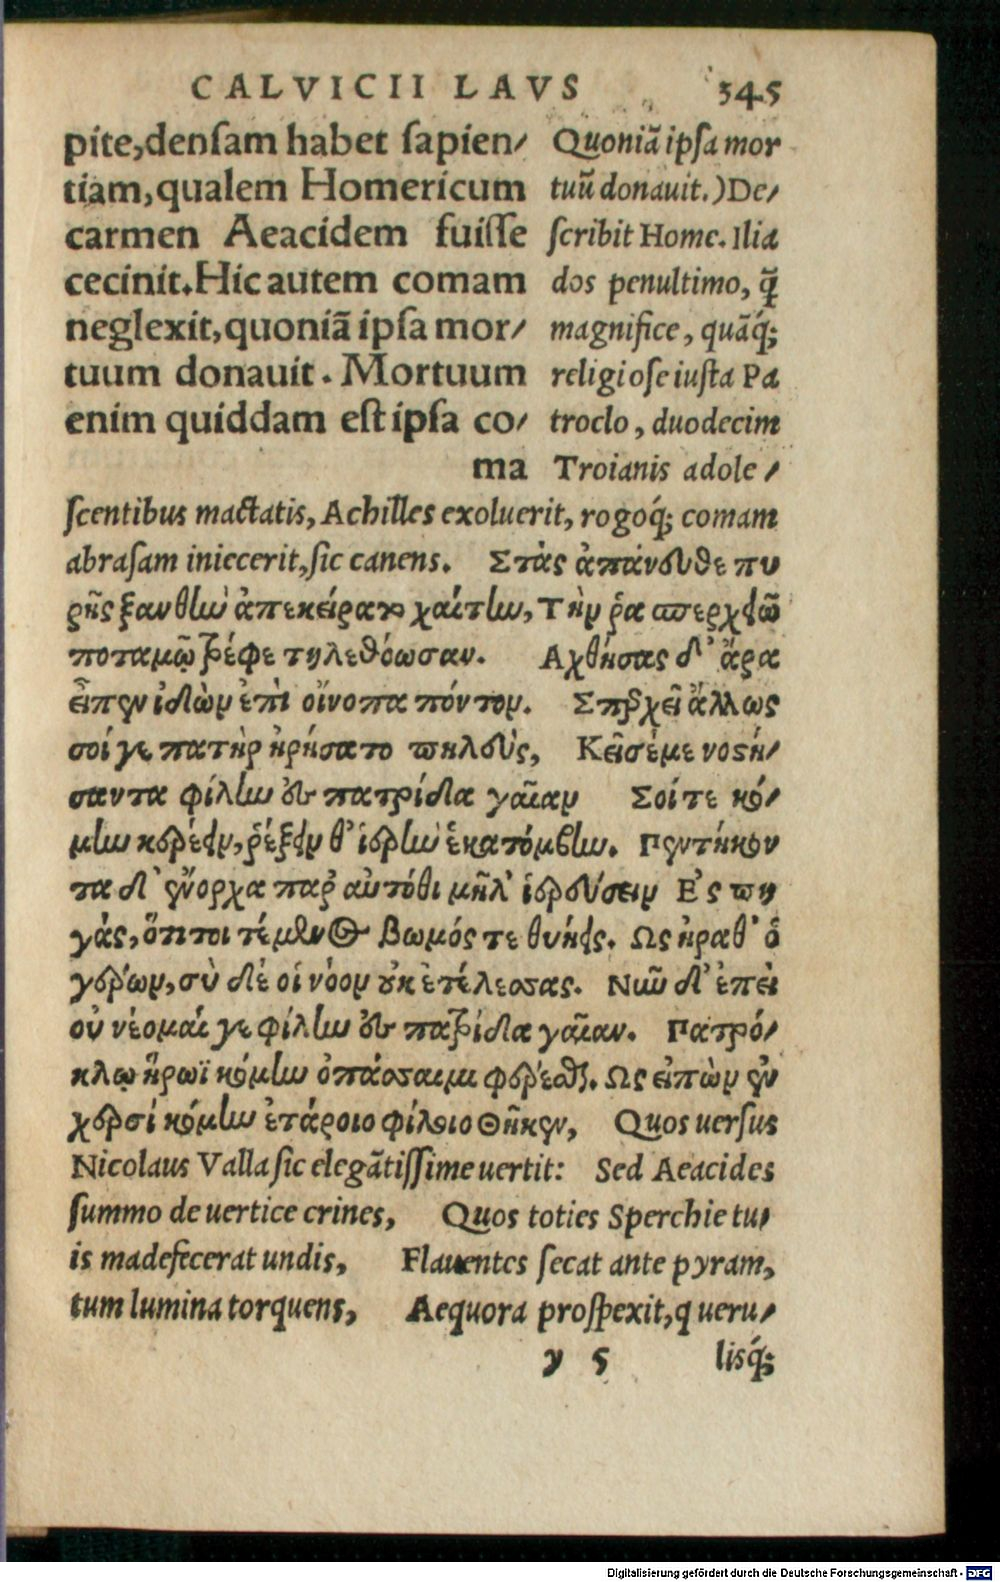 CALVICII LAVS 345
pite,densam habet sapien/
tiam,qualem Homericum
carmen Aeacidem fuisse
cecinit.Hic autem comam
neglexit,quoniã ipsa mor/
tuum donauit. Mortuum
enim quiddam est ipsa co/
ma
Quoniã ipsa mor
tuũ donauit.) De/
scribit Home. Ilia
dos penultimo, q̃
magnifice, quãq́;
religiose iusta Pa
troclo, duodecim
Troianis adole/
scentibus mactatis, Achilles exoluerit, rogoq́; comam
abrasam iniecerit, sic canens. Στὰς ἀπάνευθε πυ
ρῆς ξανθὴν ἀπεκείρατο χαίτην, Τὴν ῥα σπερχειῷ
ποταμῷ τρέφε τηλεθόωσαν. Αχθήσας δ' ἄρα
εἶπεν ἰδὼν ἐπὶ οἴνοπα πόντον. Σπερχεῖ ἄλλως
σοί γε πατὴρ ἠρήσατο πηλεὺς, Κεῖσέ με νοστή/
σαντα φίλην ἐν πατρίδα γαῖαν Σοί τε κό/
μην κερέειν, ῥέξειν θ' ἱερὴν ἑκατόμβην. Πεντήκον
τα δ' ἔνορχα παρ' αὐτόθι μῆλ' ἱερεύσειν Ες πη
γὰς, ὅπι τοι τέμενος βωμός τε θυήεις. Ως ἠραθ' ὁ
γέρων, σὺ δέ οἱ νόον οὐκ ἐτέλεσσας. Νῦν δ' ἐπεὶ
οὐ νέομαί γε φίλην ἐν πατρίδα γαῖαν. Πατρό/
κλῳ ἥρωϊ κόμην ὀπάσαιμι φέρεσθαι. Ως εἰπὼν ἐν
χερσὶ κόμην ἑτάροιο φίλοιο Θῆκεν, Quos uersus
Nicolaus Valla sic elegãtissime uertit: Sed Aeacides
summo de uertice crines, Quos toties Sperchie tu/
is madefecerat undis, Flauentes secat ante pyram,
tum lumina torquens, Aequora prospexit, q ueru/
y 5 lisq́;
Digitalisierung gefördert durch die Deutsche Forschungsgemeinschaft - DFG